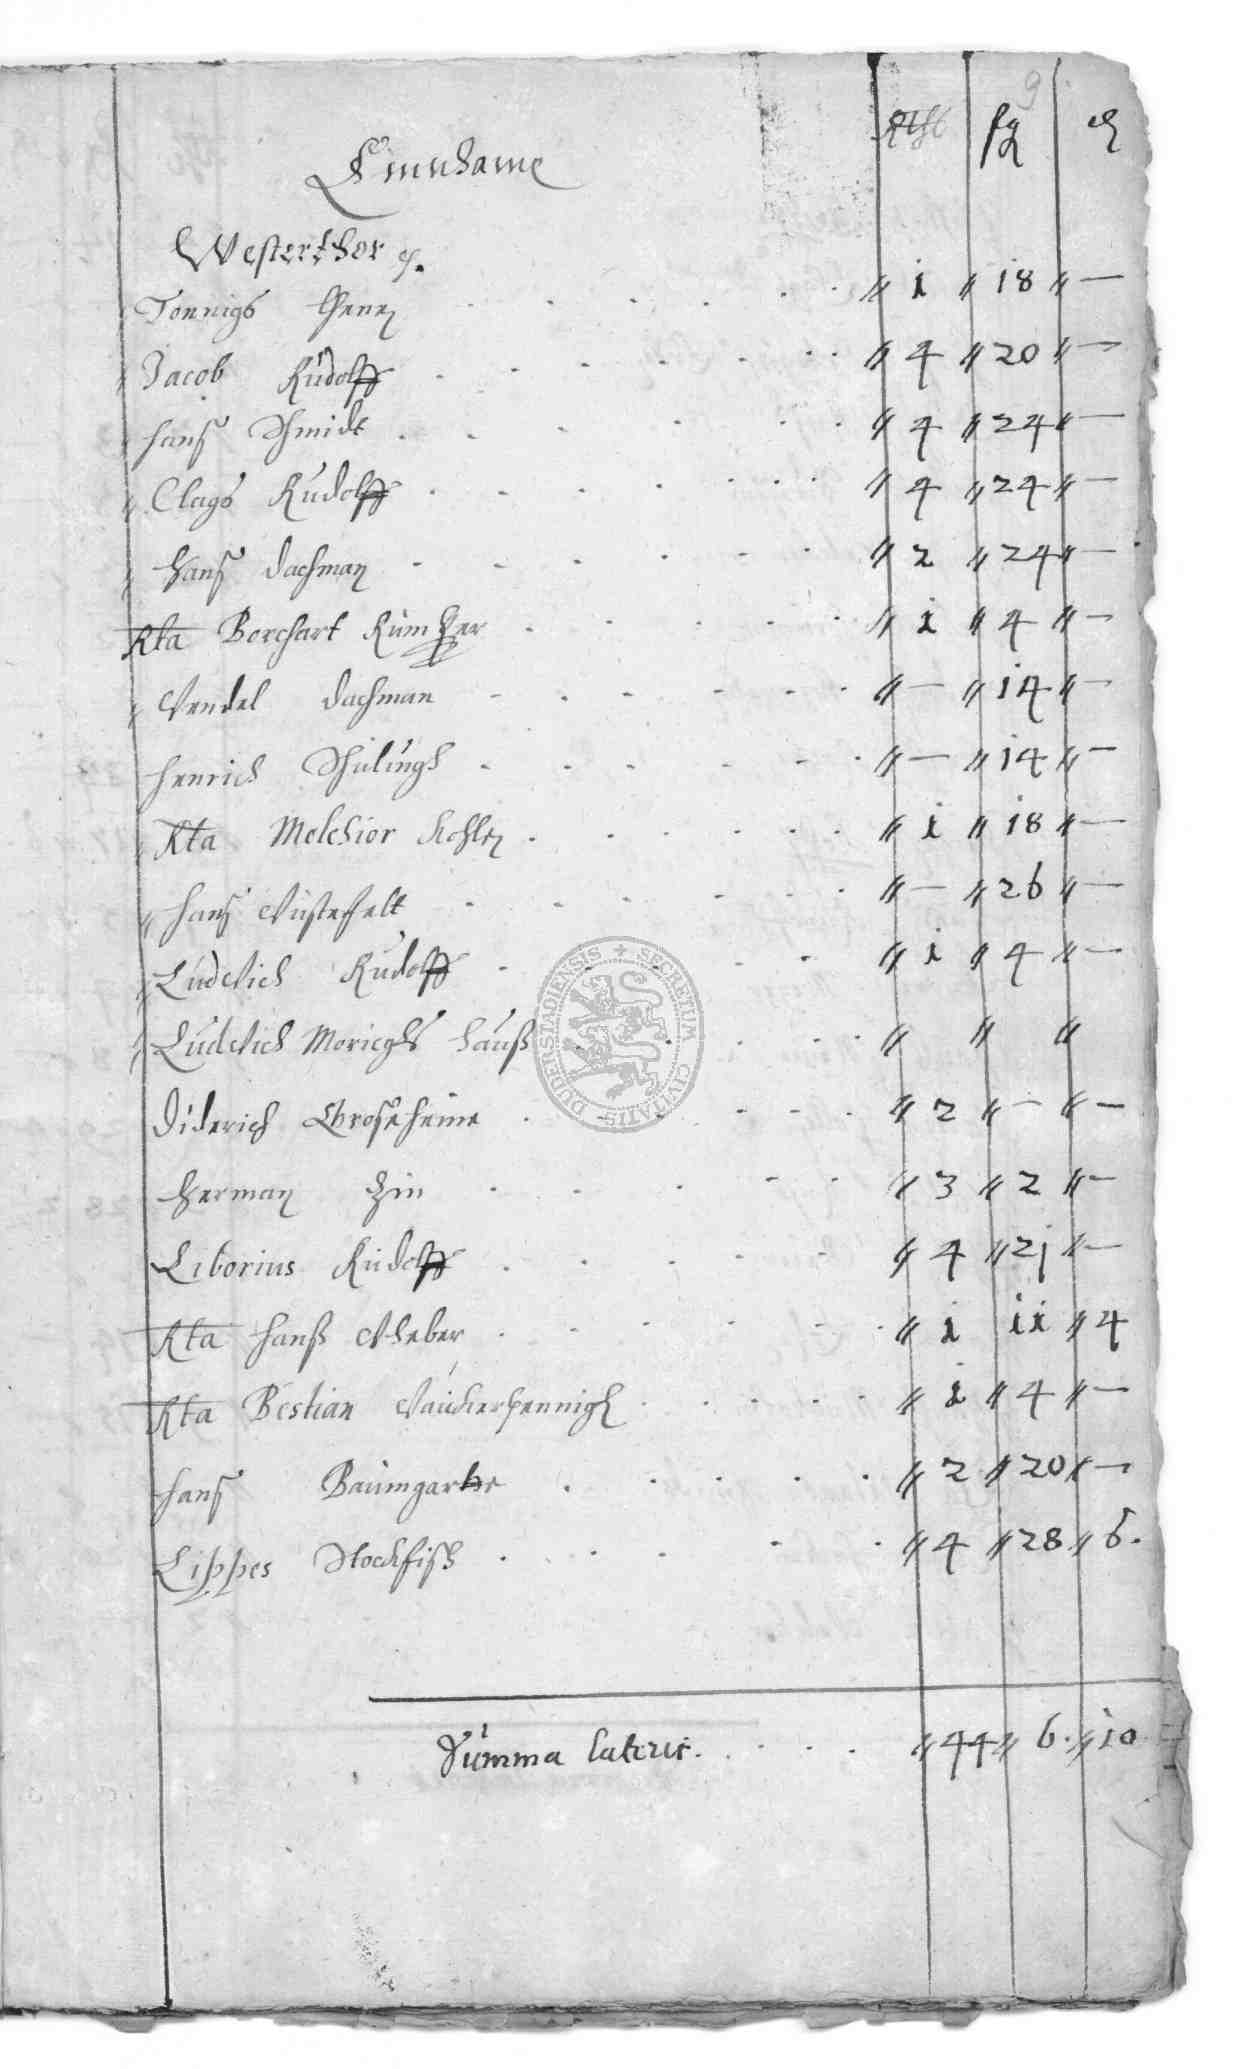 9
Einnhame
Westerthor
Tonnigs Henn " 1 " 18 " —
Jacob Rudolff " 4 " 20 " —
Hans Schmidt " 4 " 24 " —
Clags Rudolff " 4 " 24 " —
Hans Dachman " 2 " 24 " —
Rta Borchart " 1 " 4 " —
Wendel Dachman " — " 14 " —
Henrich Schulingh " — " 14 " —
Rta Melchior Kohlen " 1 " 18 " —
Hans Wüstefelt " — " 26 " —
Ludwich Rudolff " 1 " 4 " —
Ludwich Morieghs hauß " " "
Diderich Großeheine " 2 " — " —
Herman Zin " 3 " 2 " —
Liborius Rudolff " 4 " 21 " —
Rta Hanß Weber " 1 11 " 4
Rta Bestian " 1 " 4 " —
Hans Baumgarte " 2 " 20 " —
Lippes Stockfisch " 4 " 28 " 6.
Summa lateris. " 44 " 6. " 10
SECRETUM CIVITATIS DUDERSTADIENSIS